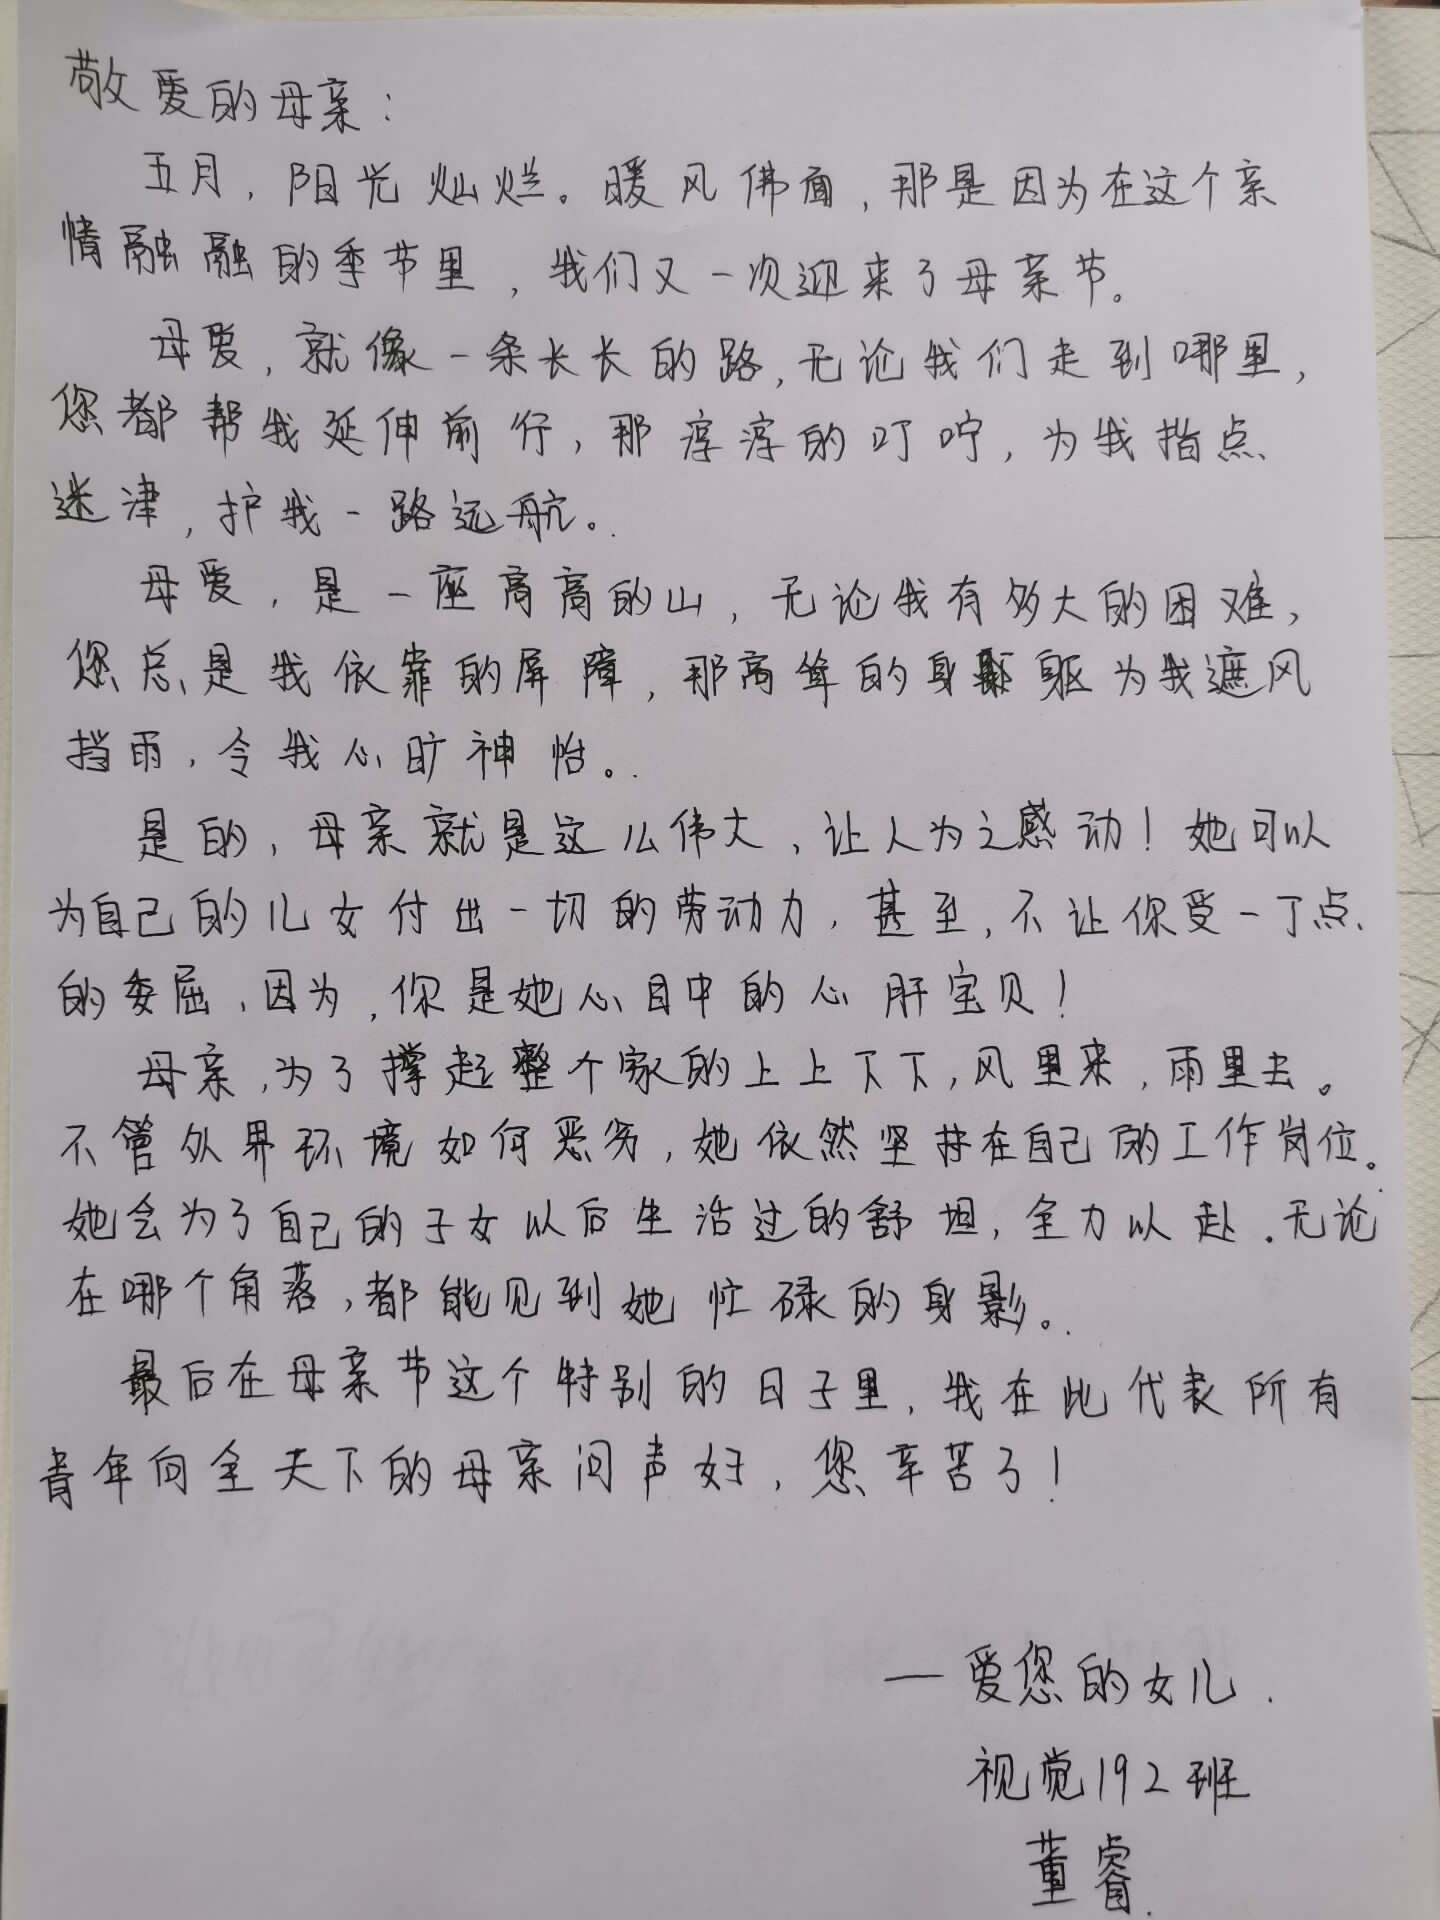 敬爱的母亲：
五月，阳光灿烂。暖风佛面，那是因为在这个亲
情融融的季节里，我们又一次迎来了母亲节。
母爱，就像一条长长的路，无论我们走到哪里，
您都帮我延伸前行，那淳淳的叮咛，为我指点
迷津，护我一路远航。
母爱，是一座高高的山，无论我有多大的困难，
您总是我依靠的屏障，那高耸的身躯为我遮风
挡雨，令我心旷神怡。
是的，母亲就是这么伟大，让人为之感动！她可以
为自己的儿女付出一切的劳动力，甚至，不让你受一丁点
的委屈，因为，你是她心目中的心肝宝贝！
母亲，为了撑起整个家的上上下下，风里来，雨里去。
不管外界环境如何恶劣，她依然坚持在自己的工作岗位。
她会为了自己的子女以后生活过的舒坦，全力以赴．无论
在哪个角落，都能见到她忙碌的身影。
最后在母亲节这个特别的日子里，我在此代表所有
青年向全天下的母亲问声好，您辛苦了！
—爱您的女儿．
视觉192班
董睿．